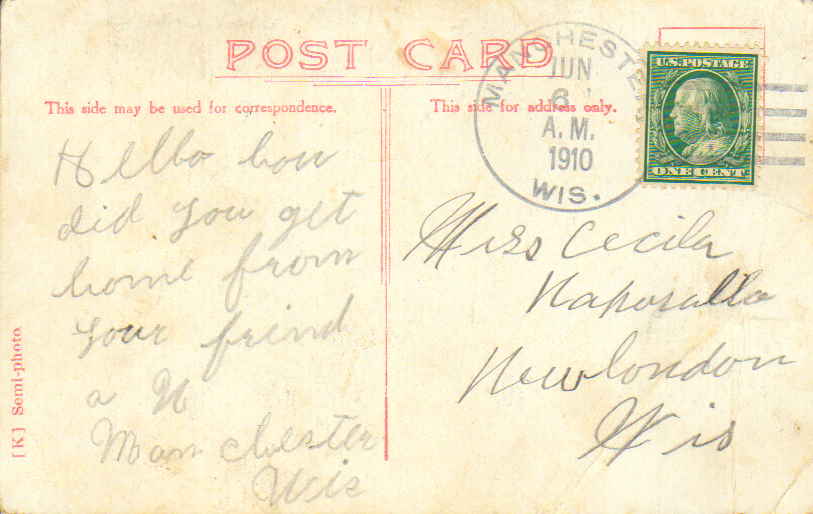 POST CARD
This side may be used for correspondence.
This side for address only.
MANCHESTER
JUN
6
A. M.
1910
WIS.
U.S. POSTAGE
ONE CENT
Hello how
did you get
home from
your frind
a N
Manchester
Wis
Miss Cecila
Naporalla
New london
Wis
[K] Semi-photo